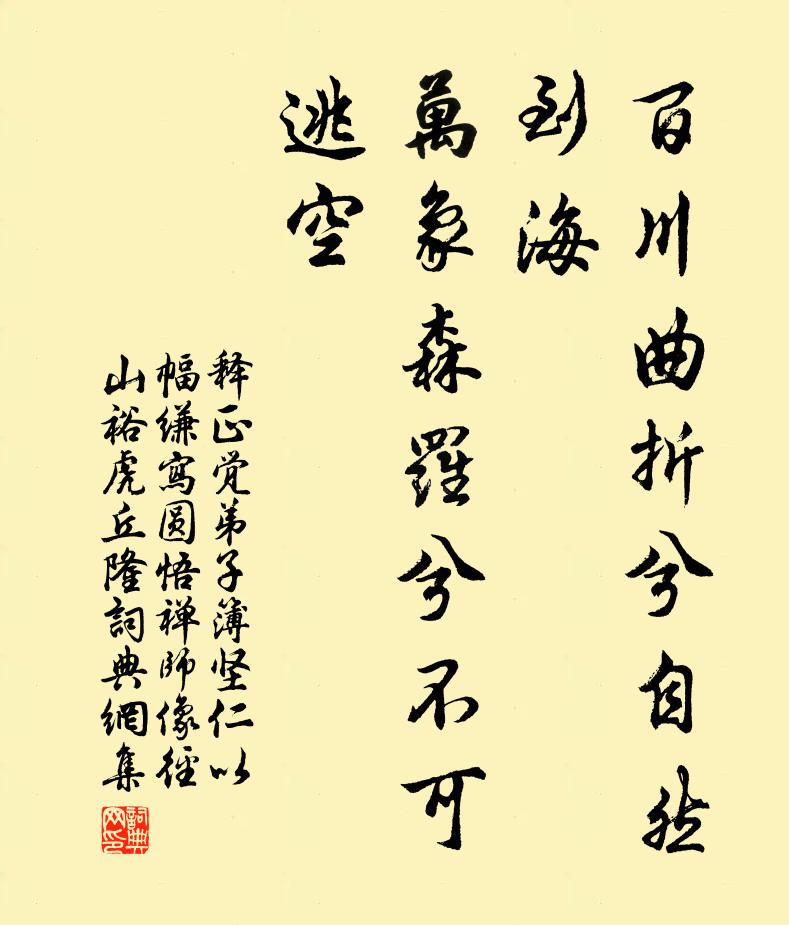 百川曲折兮自然
到海
萬象森羅兮不可
逃空
释正觉弟子簿坚仁以
幅縑寫圆悟禅師像徑
山裕虎丘隆詞典網集
詞典
网印